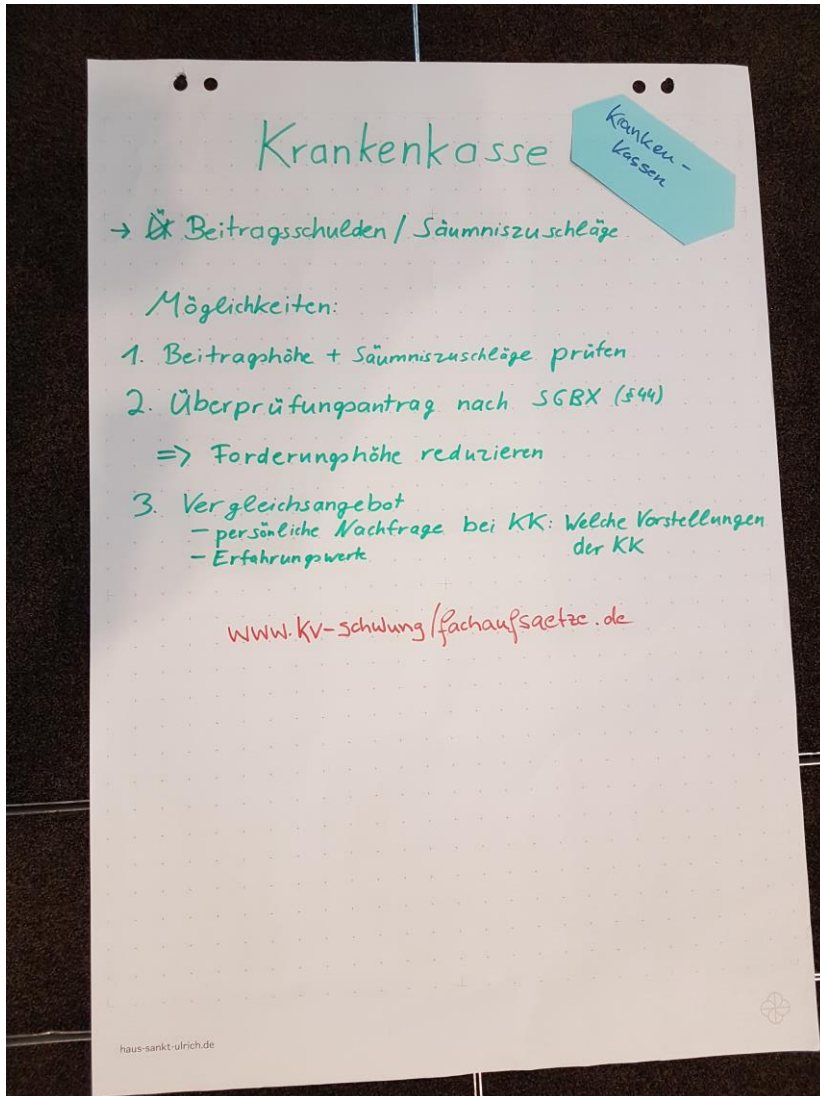 Krankenkasse
Kranken-
kassen
→ Beitragsschulden / Säumniszuschläge
Möglichkeiten:
1. Beitragshöhe + Säumniszuschläge prüfen
2. Überprüfungsantrag nach SGBX (§44)
=> Forderungshöhe reduzieren
3. Vergleichsangebot
– persönliche Nachfrage bei KK: Welche Vorstellungen
der KK
– Erfahrungswerte
www.kv-schwung/fachaufsaetze.de
haus-sankt-ulrich.de